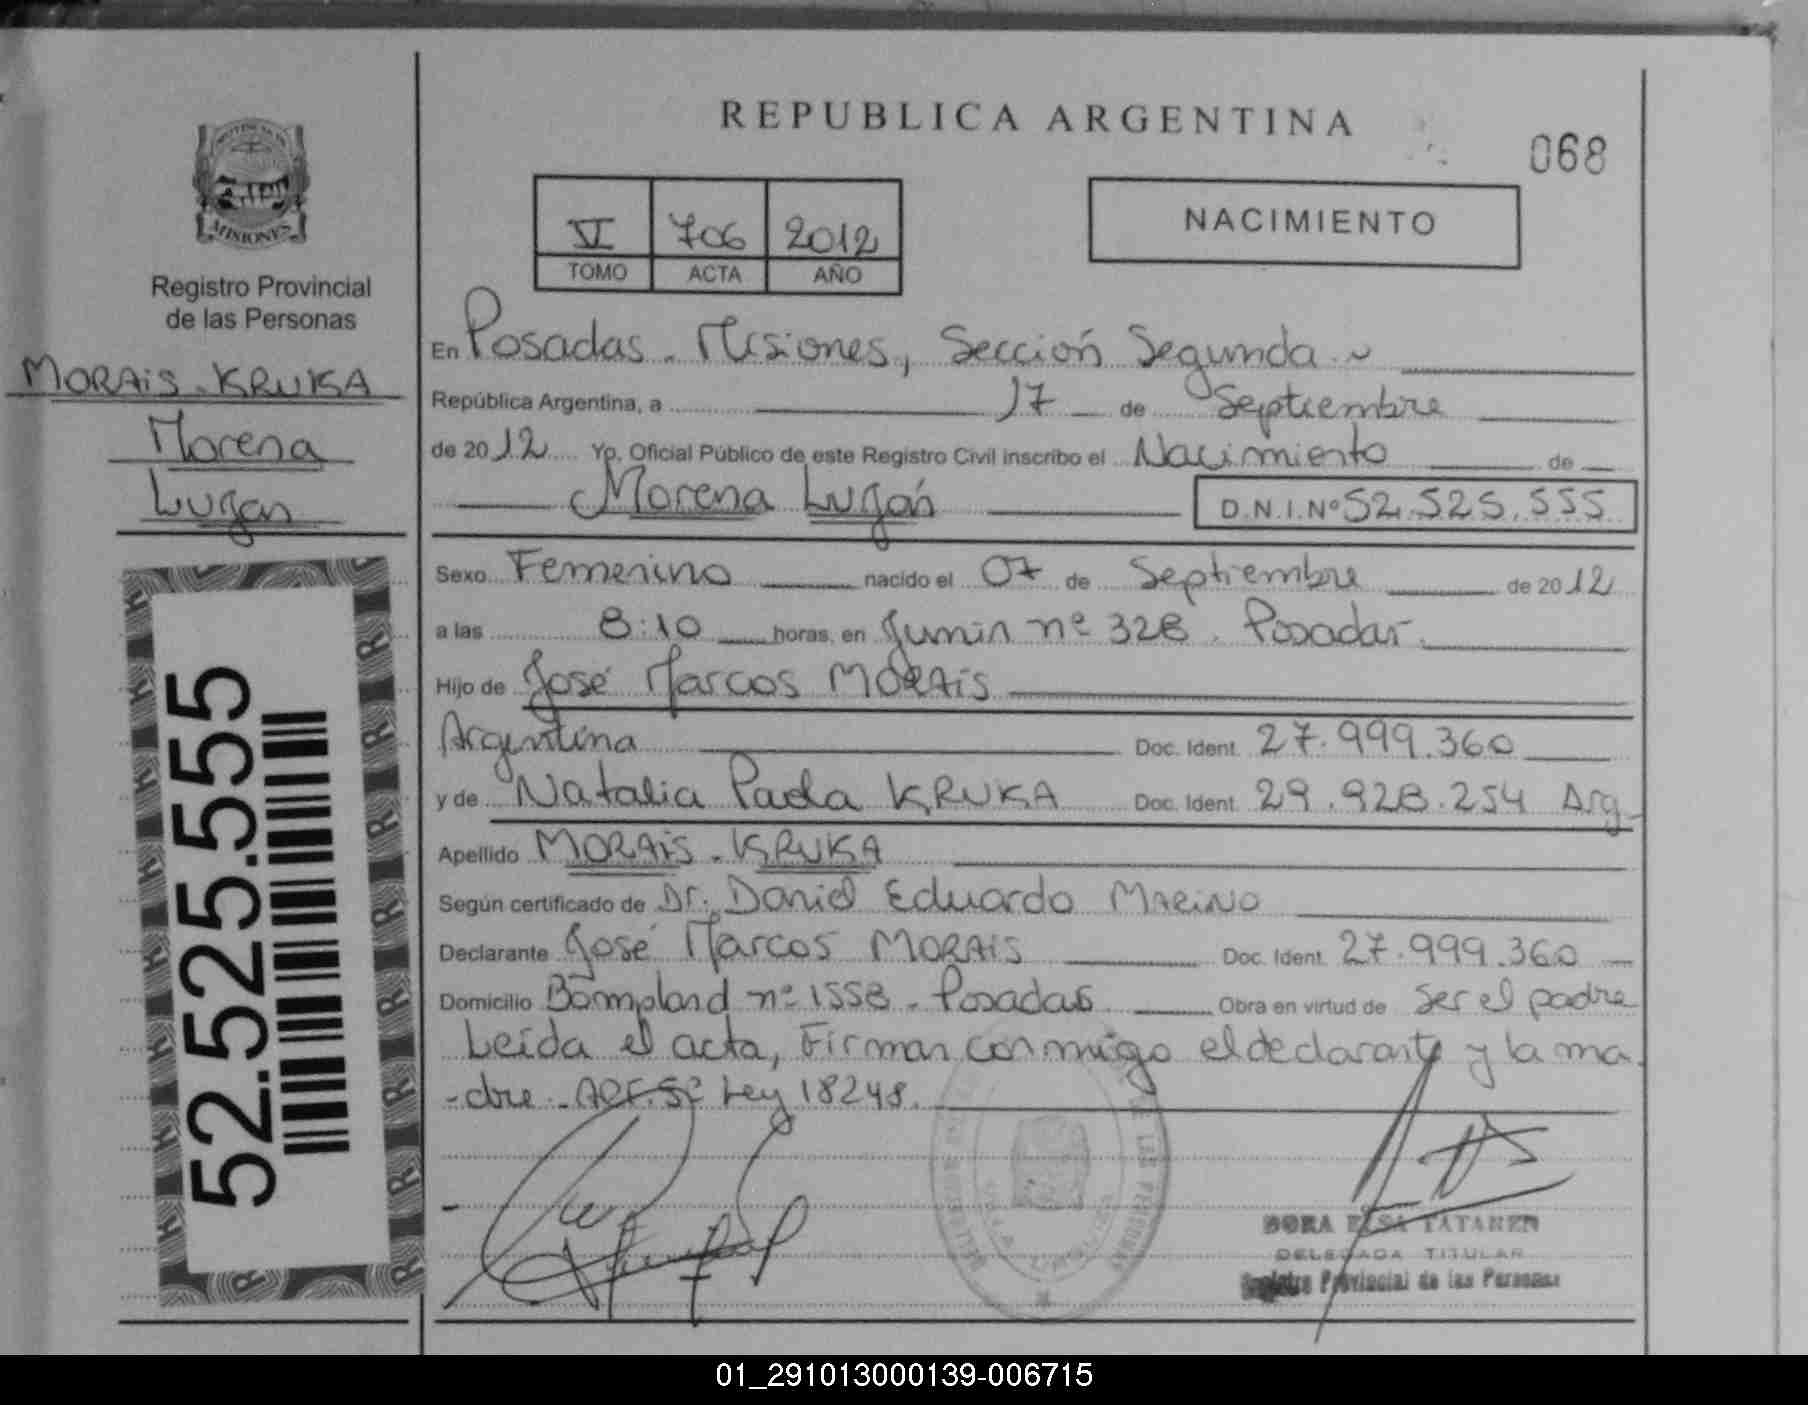 REPUBLICA ARGENTINA
068
VI 706 2012
TOMO ACTA AÑO
NACIMIENTO
MISIONES
Registro Provincial
de las Personas
MORAIS - KRUKA
Morena
Luján
En Posadas - Misiones, Sección Segunda
República Argentina, a 17 de Septiembre
de 2012 Yo, Oficial Público de este Registro Civil inscribo el Nacimiento de
Morena Luján D.N.I.Nº 52.525.555
Sexo Femenino nacido el 07 de Septiembre de 2012
a las 8:10 horas, en Junin nº 328. Posadas.
Hijo de José Marcos MORAIS
Argentina Doc. Ident. 27.999.360
y de Natalia Paola KRUKA Doc. Ident. 29.928.254 Arg
Apellido MORAIS - KRUKA
Según certificado de Dr. Daniel Eduardo MARINO
Declarante José Marcos MORAIS Doc. Ident. 27.999.360
Domicilio Bompland nº 1558 - Posadas Obra en virtud de ser el padre
Leída el acta, Firman conmigo el declarante y la ma
-dre - Art. 5º Ley 18248.
52.525.555
DORA ELSA TATAREN
DELEGADA TITULAR
Registro Provincial de las Personas
01_291013000139-006715